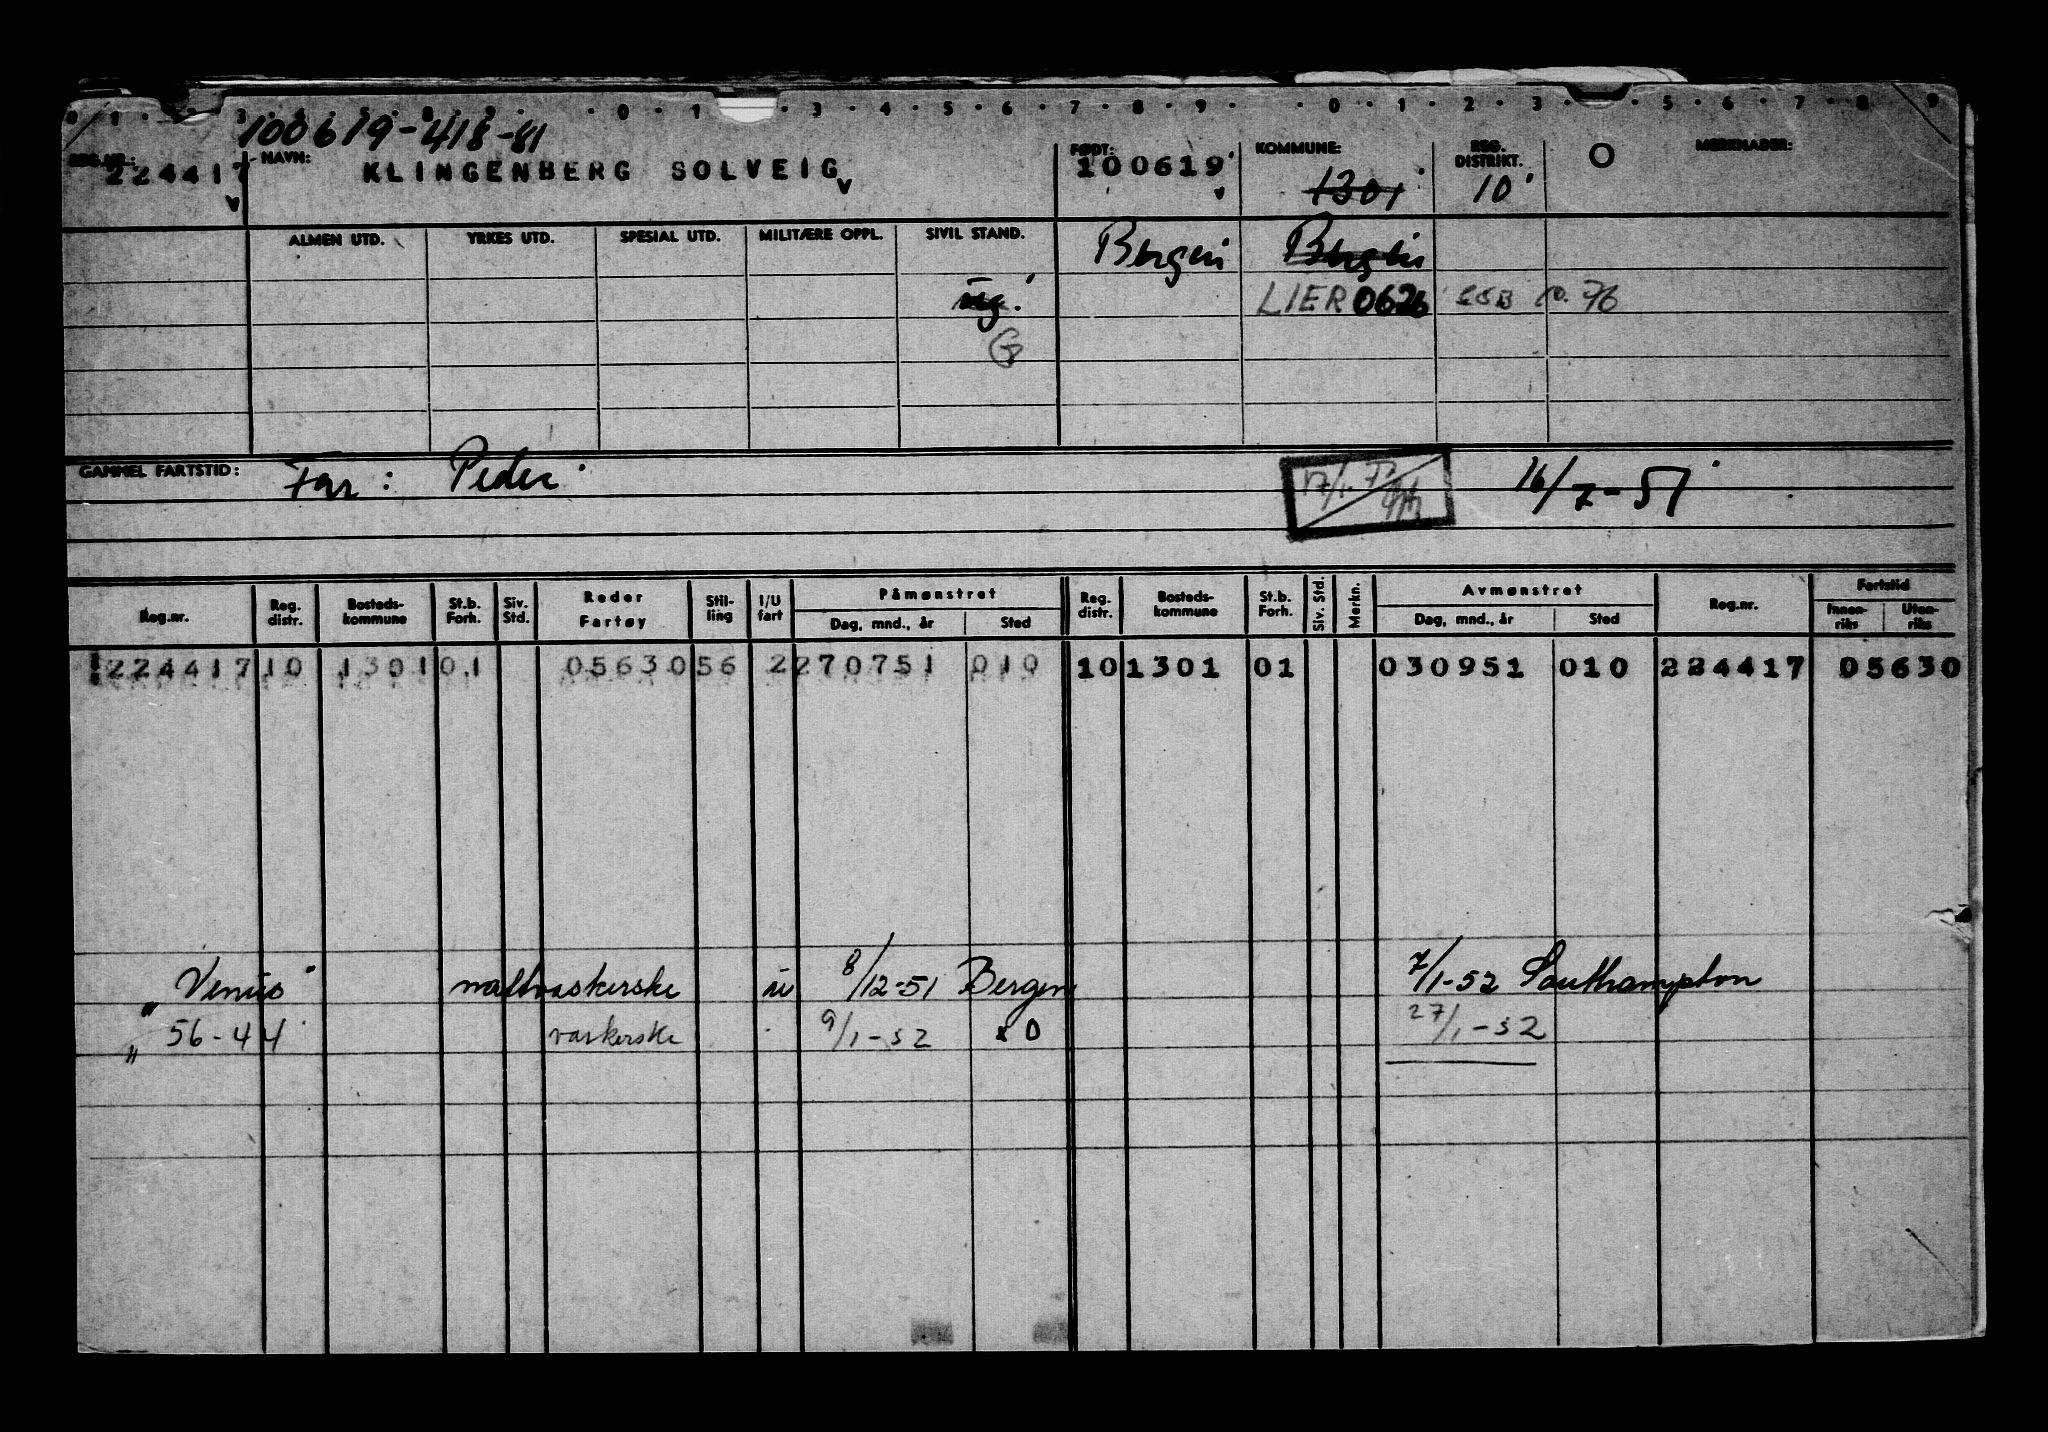 0 1 3 8 9 0 1 3 4 5 6 7 8 9 0 1 2 3 5 6 7 8 9
100619-418-81
REG.NR.: 224417 NAVN: KLINGENBERG SOLVEIG FØDT: 100619 KOMMUNE: 1301 REG. DISTRIKT. 10 O MERKNADER:
ALMEN UTD. YRKES UTD. SPESIAL UTD. MILITÆRE OPPL. SIVIL STAND. Bergen Bergen
ug. LIER 0626 76
G
GAMMEL FARTSTID: Far: Peder 16/7-51
Reg.nr. Reg. distr. Bosteds-kommune St.b. Forh. Siv. Std. Reder Fartøy Stil-ling I/U fart Påmønstret Dag, mnd., år Sted Reg. distr. Bosteds-kommune St.b. Forh. Siv. Std. Merkn. Avmønstret Dag, mnd., år Sted Reg.nr. Fartstid Innen-riks Uten-riks
224417 10 1301 01 05630 56 2 270751 010 10 1301 01 030951 010 224417 05630
"Venus" mattvaskerske u 8/12-51 Bergen 7/1-52 Southampton
" 56-44 vaskerske 9/1-52 x 0 27/1-52